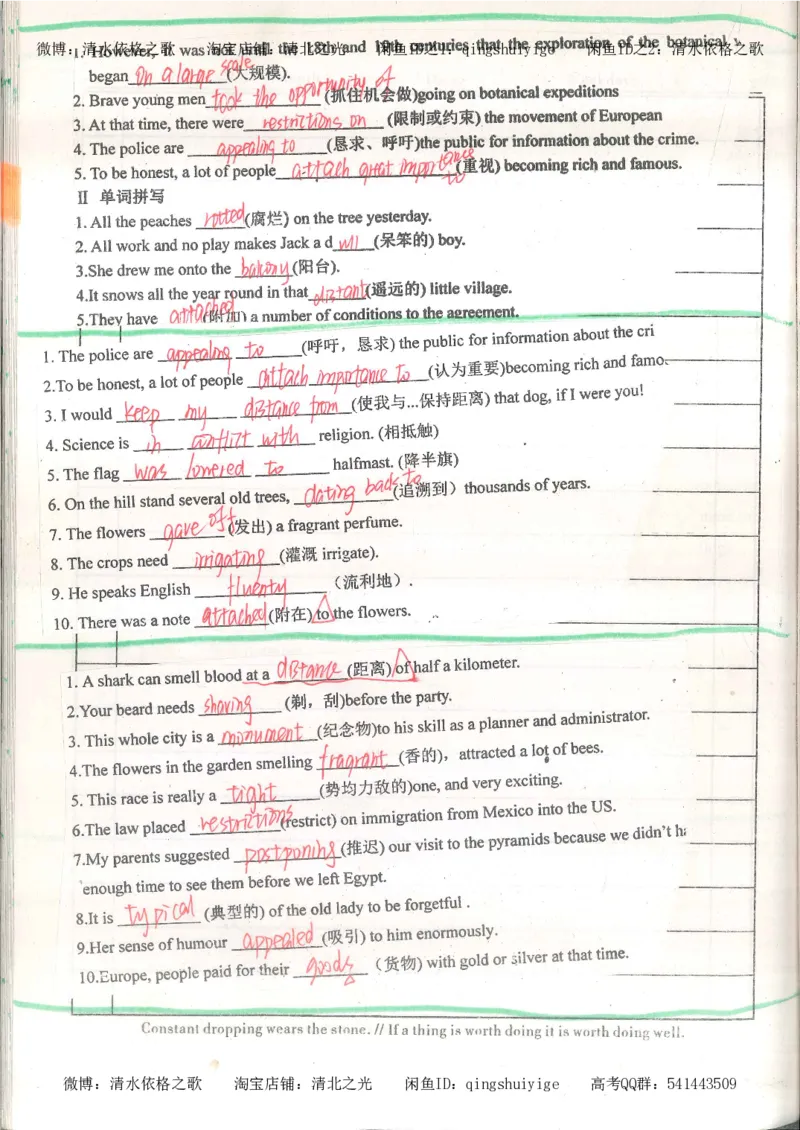 微博：清水依格之歌 淘宝店铺：清北之光 闲鱼ID之1：qingshuiyige 闲鱼ID之2：清水依格之歌
1. However, it was not until the 18th and 19th centuries that the exploration of the botanical
began on a large scale (大规模).
2. Brave young men took the opportunity of (抓住机会做)going on botanical expeditions
3. At that time, there were restrictions on (限制或约束) the movement of European
4. The police are appealing to (恳求、呼吁)the public for information about the crime.
5. To be honest, a lot of people attach great importance to (重视) becoming rich and famous.
Ⅱ 单词拼写
1. All the peaches rotted (腐烂) on the tree yesterday.
2. All work and no play makes Jack a d ull (呆笨的) boy.
3.She drew me onto the balcony (阳台).
4.It snows all the year round in that distant (遥远的) little village.
5.They have attached (附加) a number of conditions to the agreement.
1. The police are appealing to (呼吁，恳求) the public for information about the cri
2.To be honest, a lot of people attach importance to (认为重要)becoming rich and famo
3. I would keep my distance from (使我与...保持距离) that dog, if I were you!
4. Science is in conflict with religion. (相抵触)
5. The flag was lowered to halfmast. (降半旗)
6. On the hill stand several old trees, dating back to (追溯到）thousands of years.
7. The flowers gave off (发出) a fragrant perfume.
8. The crops need irrigating (灌溉 irrigate).
9. He speaks English fluenty （流利地）.
10. There was a note attached (附在) to the flowers.
1. A shark can smell blood at a distance (距离) of half a kilometer.
2.Your beard needs shaving (剃，刮)before the party.
3. This whole city is a monument (纪念物)to his skill as a planner and administrator.
4.The flowers in the garden smelling fragrant (香的)，attracted a lot of bees.
5. This race is really a tight (势均力敌的)one, and very exciting.
6.The law placed restrictions (restrict) on immigration from Mexico into the US.
7.My parents suggested postponing (推迟) our visit to the pyramids because we didn't ha
enough time to see them before we left Egypt.
8.It is typical (典型的) of the old lady to be forgetful .
9.Her sense of humour appealed (吸引) to him enormously.
10.Europe, people paid for their goods （货物) with gold or silver at that time.
Constant dropping wears the stone. // If a thing is worth doing it is worth doing well.
微博：清水依格之歌 淘宝店铺：清北之光 闲鱼ID：qingshuiyige 高考QQ群：541443509